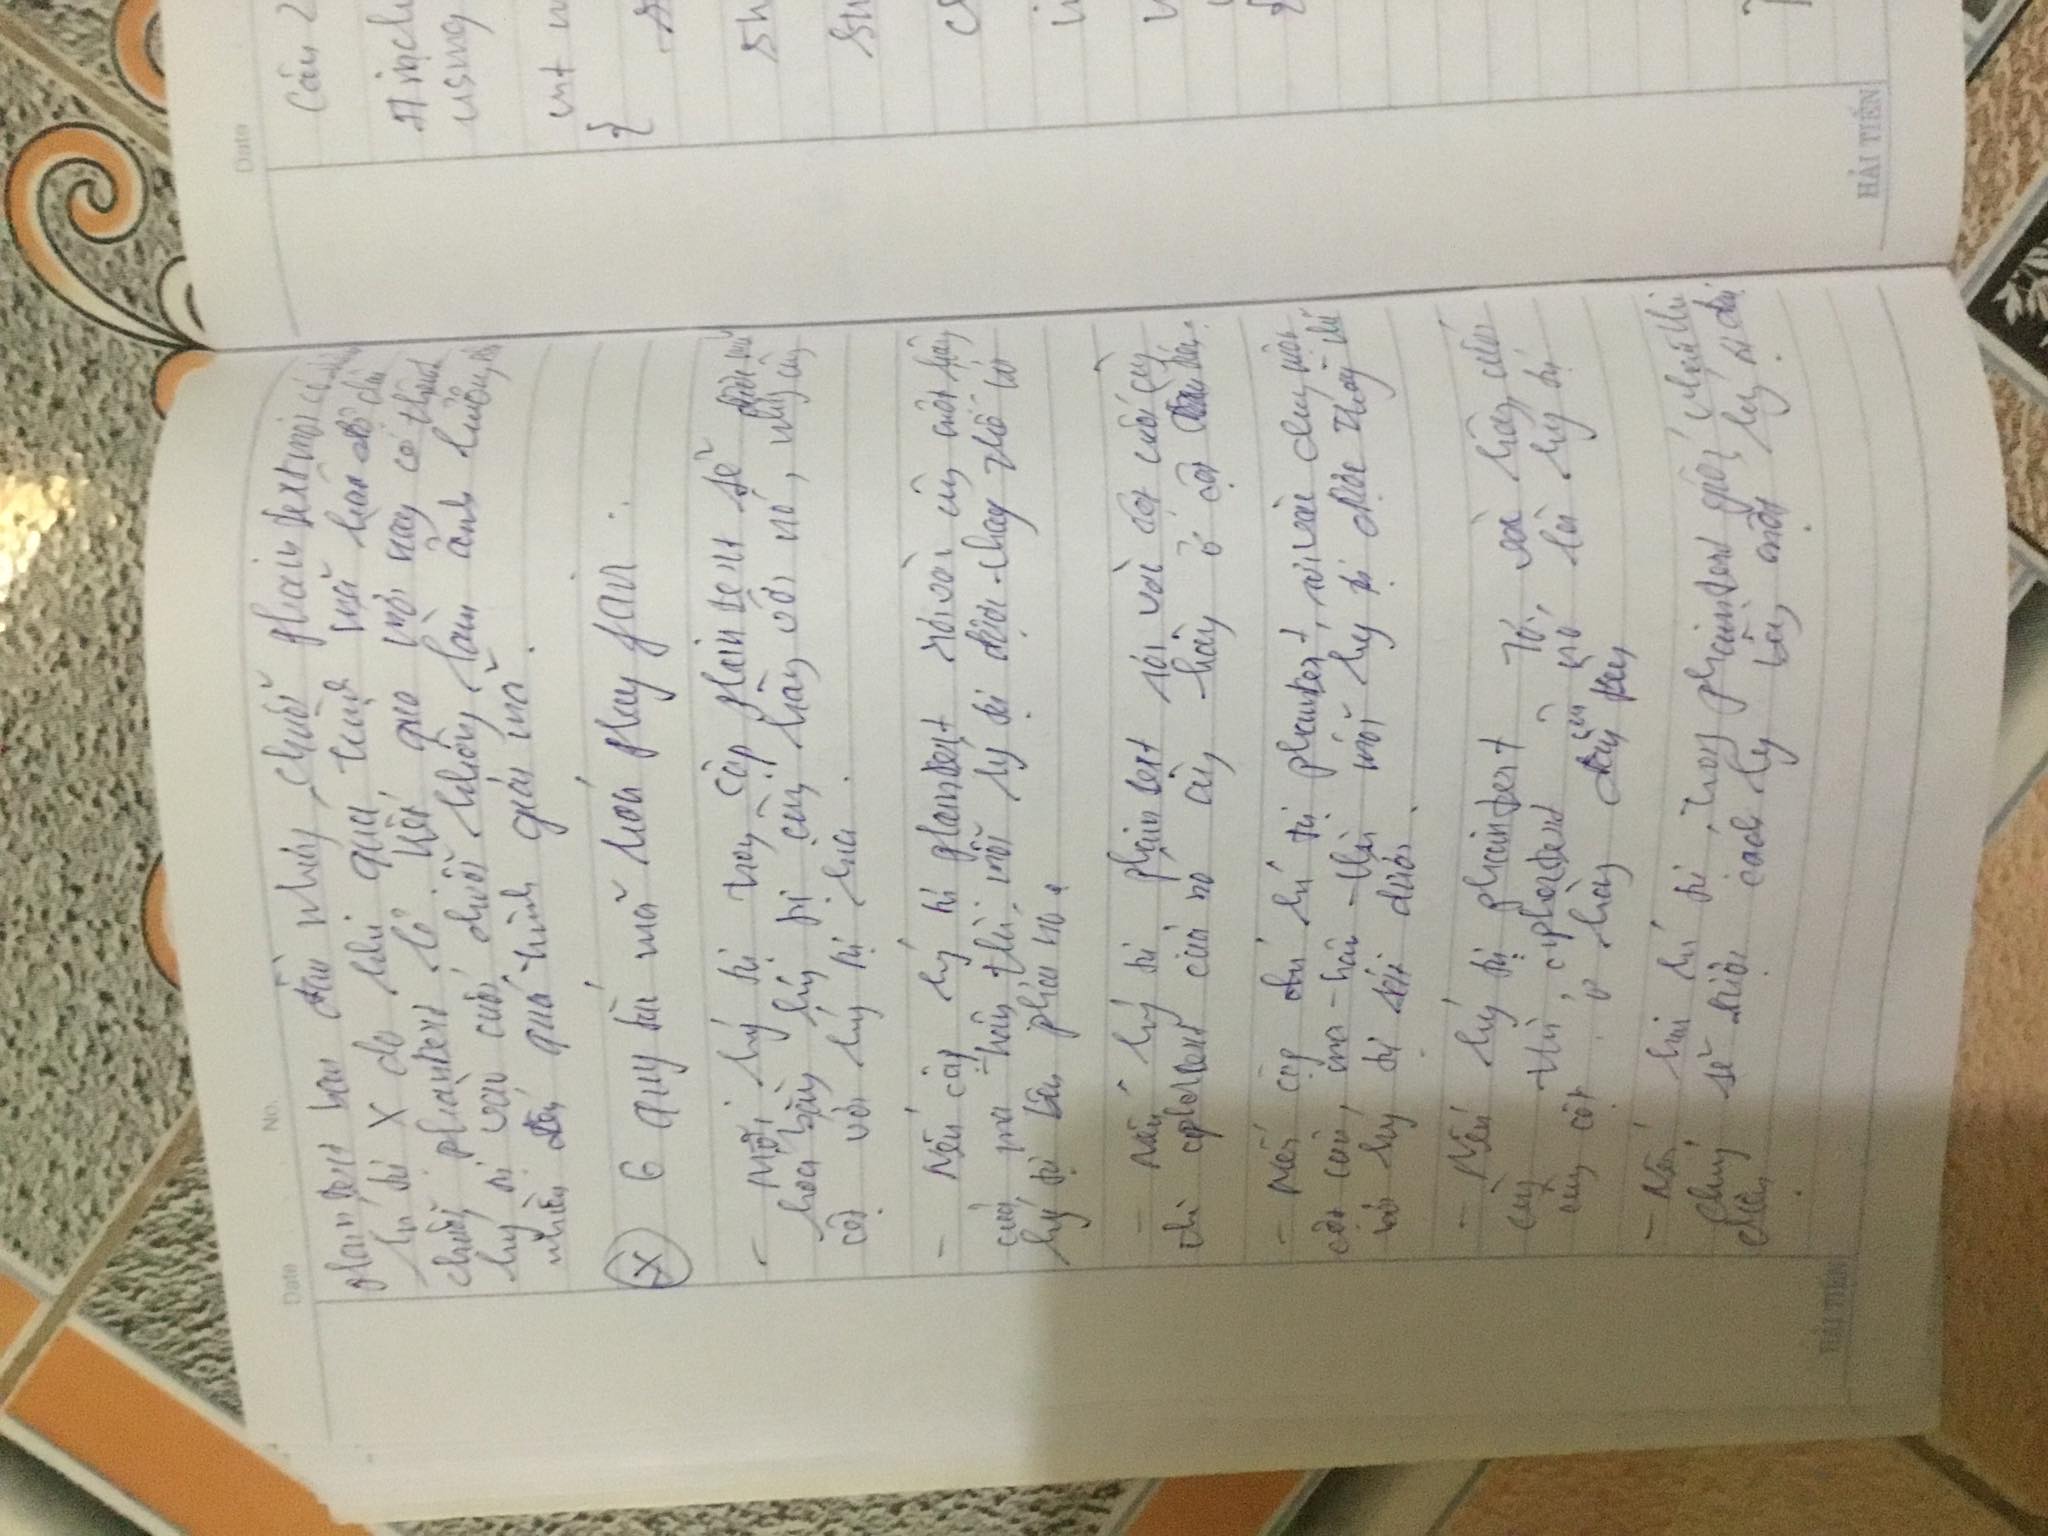 Date No.
plaintext ban đầu nhưng chuỗi plaintext mới có thêm
kí tự X do khi quá trình mã hoá độ dài
chuỗi plaintext lẻ. Kết quả mới này có thêm
ký tự vào cuối chuỗi không làm ảnh hưởng
nhiều đến quá trình giải mã.
X 6 quy tắc mã hoá play fair :
- Mỗi ký tự trong cặp plaintext sẽ được mã
hoá bằng ký tự cùng hàng với nó, nhưng cùng
cột với ký tự kia.
- Nếu cặp ký tự plaintext rơi vào cùng một hàng
của ma trận thì mỗi ký tự được thay thế bởi
ký tự bên phải nó.
- Nếu ký tự plaintext rơi vào cột cuối cùng
thì ciphertext của nó cùng hàng ở cột đầu tiên.
- Nếu cặp chữ kí tự plaintext, rơi vào chung một
cột của ma trận thì mỗi ký tự được thay thế
bởi ký tự bên dưới.
- Nếu ký tự plaintext rơi vào hàng cuối
cùng thì ciphertext của nó là ký tự
cùng cột ở hàng đầu tiên
- Nếu hai kí tự trong plaintext giống nhau thì
chúng sẽ được cách ly bằng một ký tự đại
diện
HẢI TIẾN
Date
Câu 2
using
int
{
HẢI TIẾN